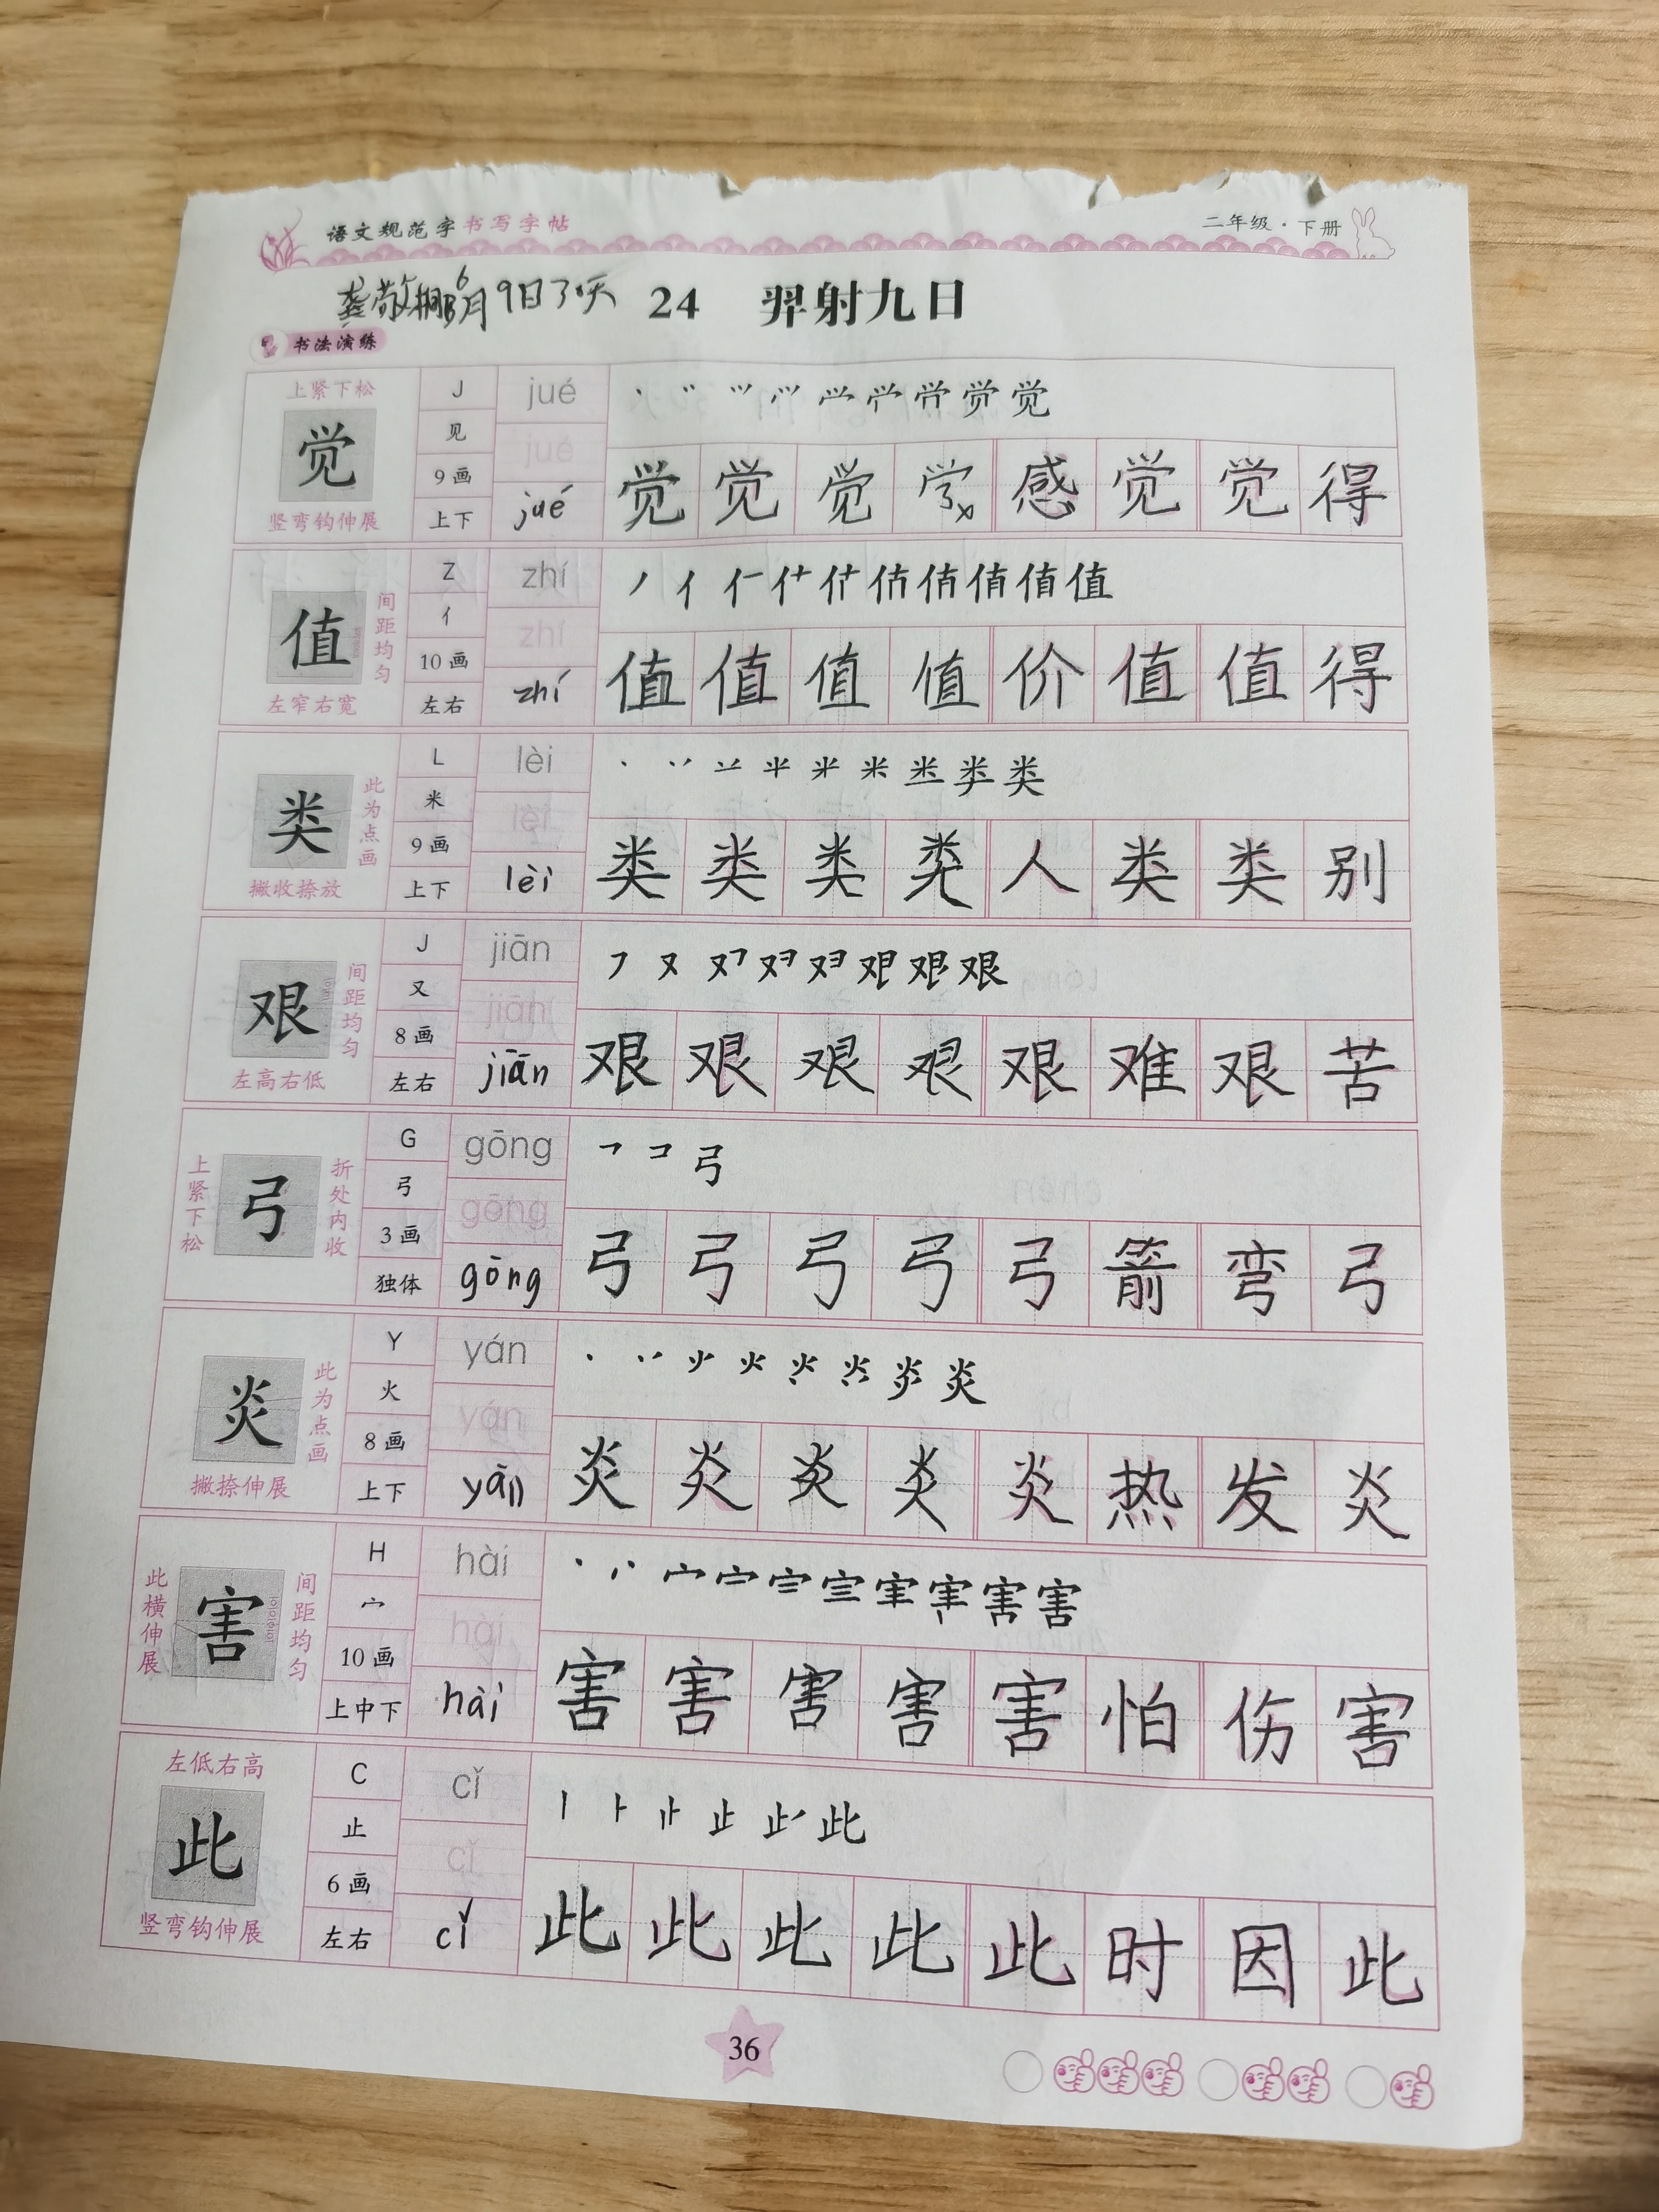 语文规范字书写字帖
二年级·下册
6月9日
24 羿射九日
书法演练
上紧下松
觉
竖弯钩伸展
J
见
9画
上下
jué
jué
jué
觉 觉 觉 感 觉 觉 得
值
间距均匀
左窄右宽
Z
亻
10画
左右
zhí
zhí
zhí
值 值 值 值 价 值 值 得
类
此为点画
撇收捺放
L
米
9画
上下
lèi
lèi
lèi
类 类 类 类 人 类 类 别
艰
间距均匀
左高右低
J
又
8画
左右
jiān
jiān
jiān
艰 艰 艰 艰 艰 难 艰 苦
上紧下松
弓
折处内收
G
弓
3画
独体
gōng
gōng
gōng
弓 弓 弓 弓 弓 箭 弯 弓
炎
此为点画
撇捺伸展
Y
火
8画
上下
yán
yán
yán
炎 炎 炎 炎 炎 热 发 炎
此横伸展
害
间距均匀
H
宀
10画
上中下
hài
hài
hài
害 害 害 害 害 怕 伤 害
左低右高
此
竖弯钩伸展
C
止
6画
左右
cǐ
cǐ
cǐ
此 此 此 此 此 时 因 此
36